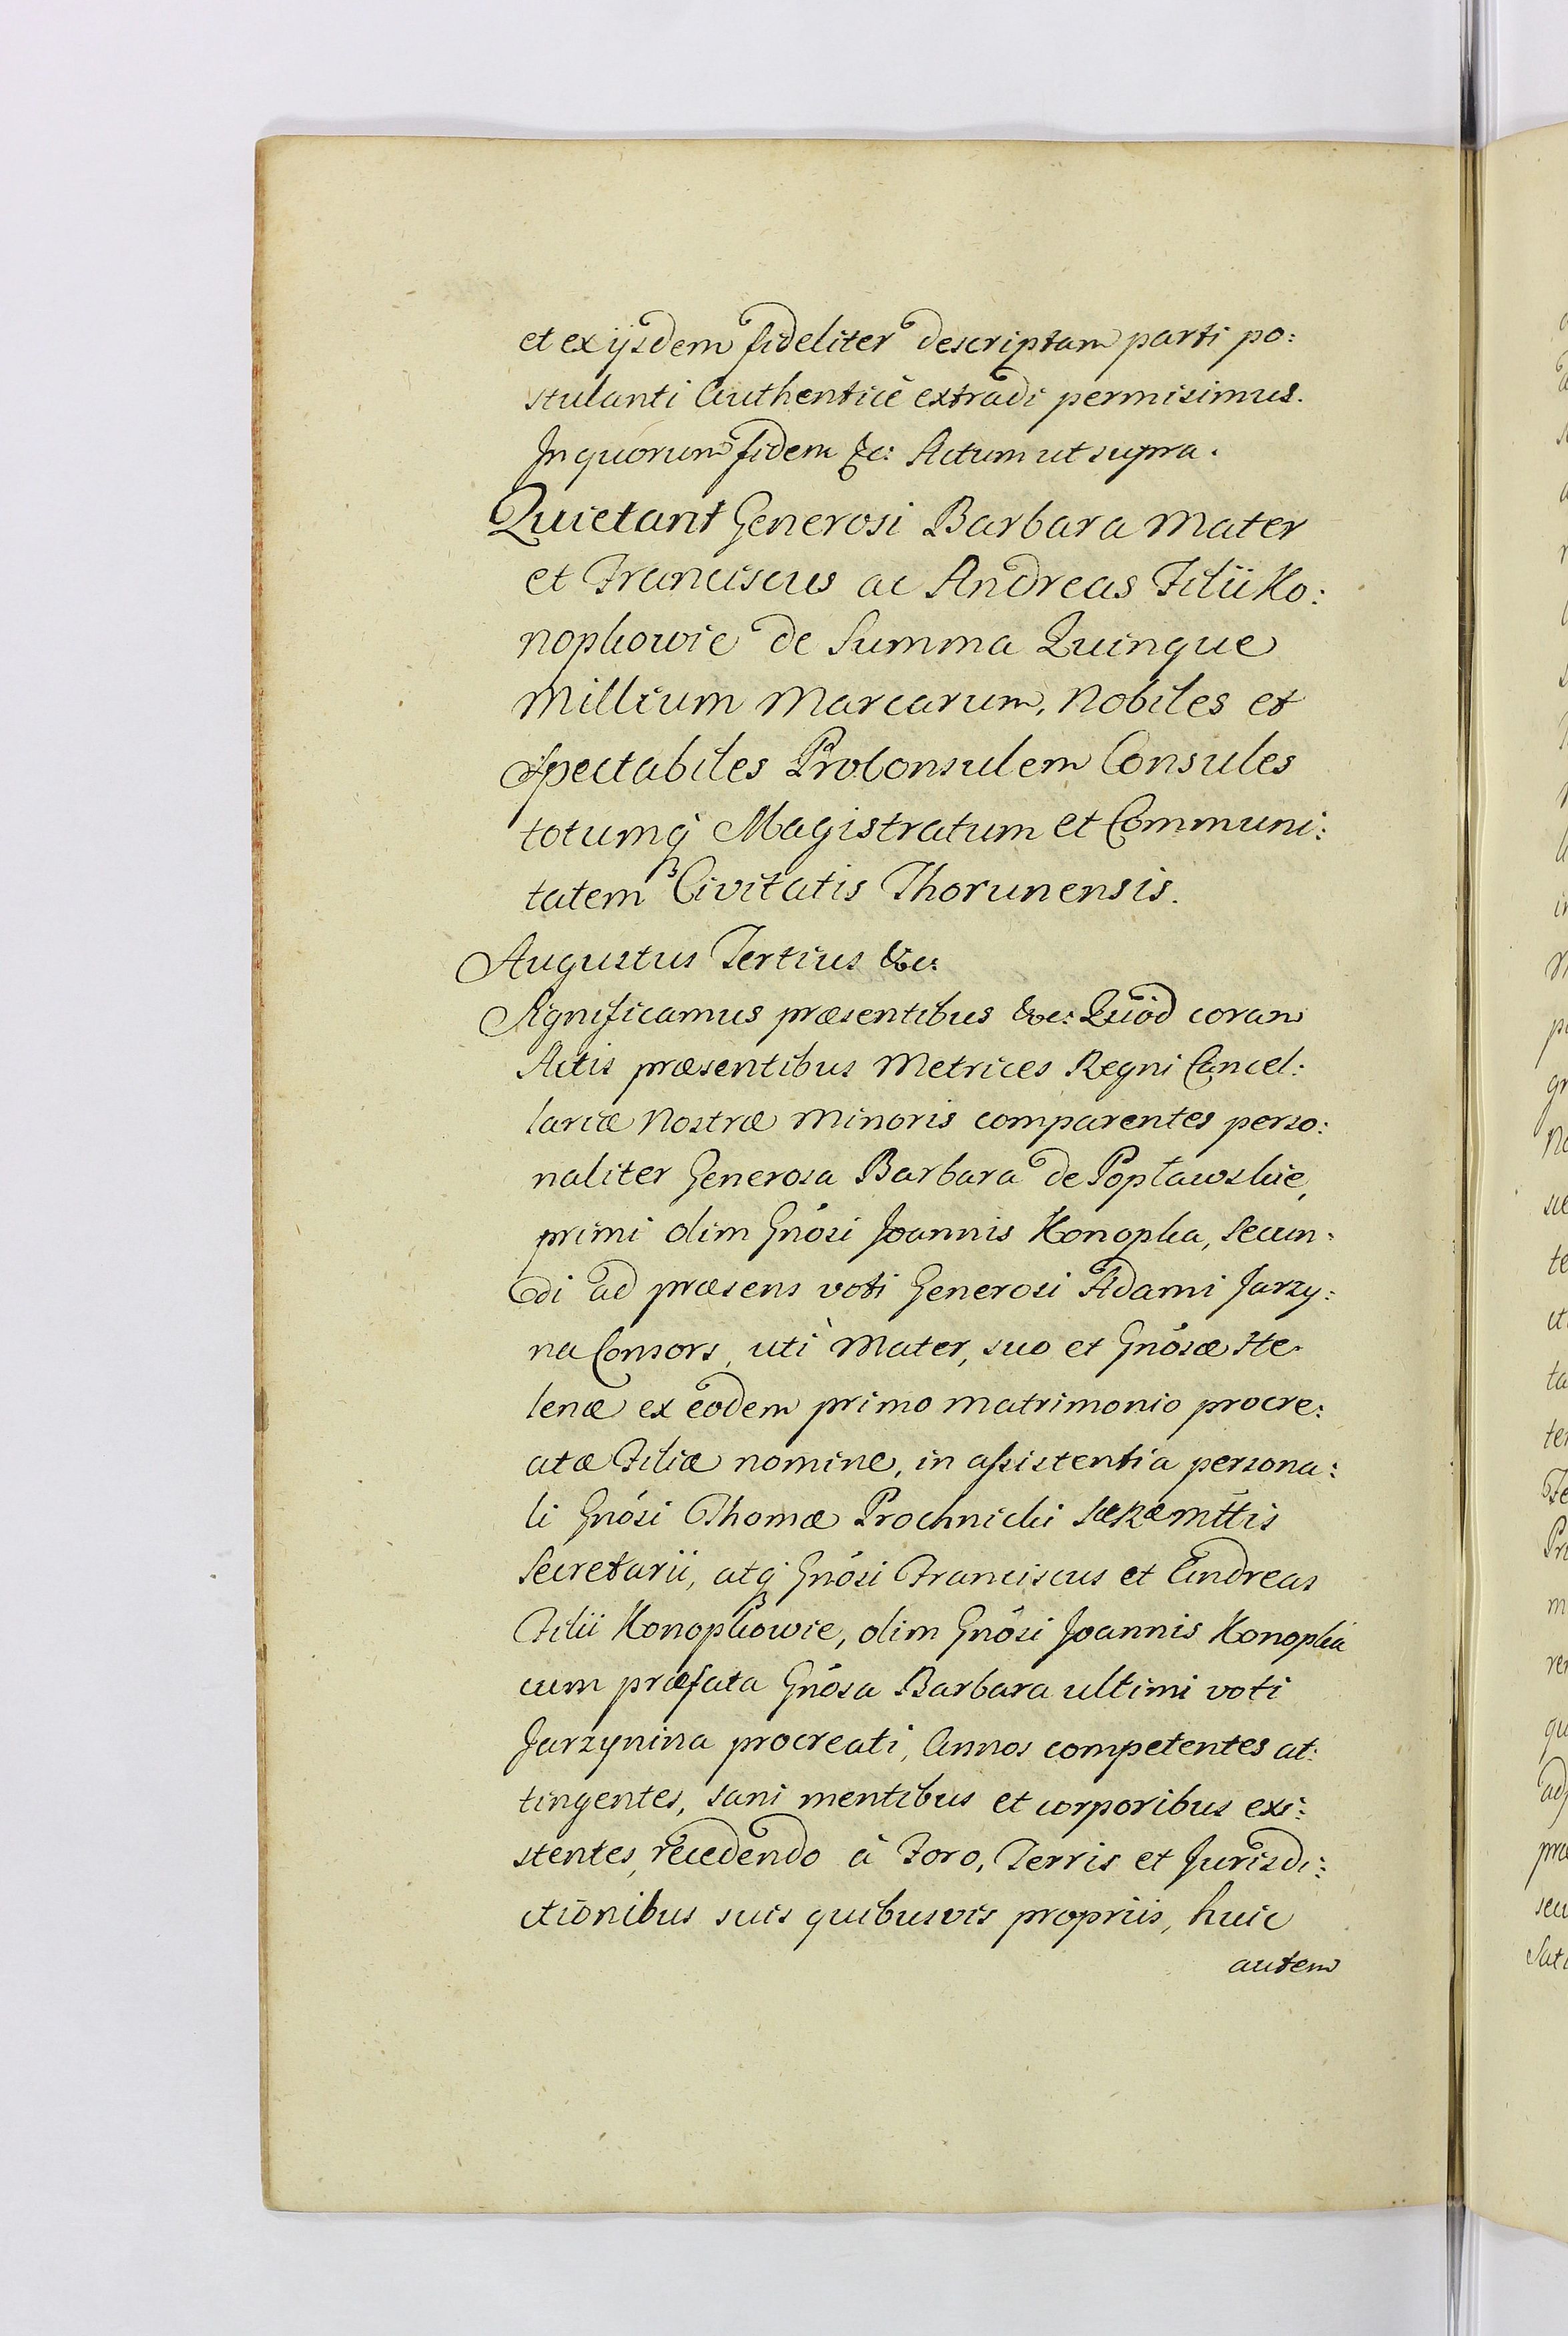 et ex ijsdem fideliter descriptam parti po:
stulanti Authenticè extradi permisimus.
In quorum fidem &c: Actum ut supra.
Quietant Generosi Barbara Mater
et Franciscus ac Andreas Filii Ko:
nopkowie de Summa Quinque
Millium Marcarum, Nobiles et
Spectabiles ProConsulem Consules
totumq Magistratum et Communi:
tatem Civitatis Thorunensis.
Augustus Tertius &c:
Significamus præsentibus &c: Quod coram
Actis præsentibus Metrices Regni Cancel:
lariæ Nostræ Minoris comparentes perso:
naliter Generosa Barbara de Popławskie,
primi olim Gnosi Joannis Konopka, Secun:
di ad præsens voti Generosi Adami Jarzy:
na Consors, uti Mater, suo et Gnosæ He:
lenæ ex eodem primo matrimonio procre:
atæ Filiæ nomine, in assistentia persona:
li Gnosi Thomæ Prochnicki SæRæMttis
Secretarii, atq Gnosi Franciscus et Andreas
Filii Konopkowie, olim Gnosi Joannis Konopka
cum præfata Gnosa Barbara ultimi voti
Jarzynina procreati, Annos competentes at:
tingentes, sani mentibus et corporibus exi:
stentes, recedendo à Foro, Terris et Jurisdi:
ctionibus suis quibusvis propriis, huic
autem